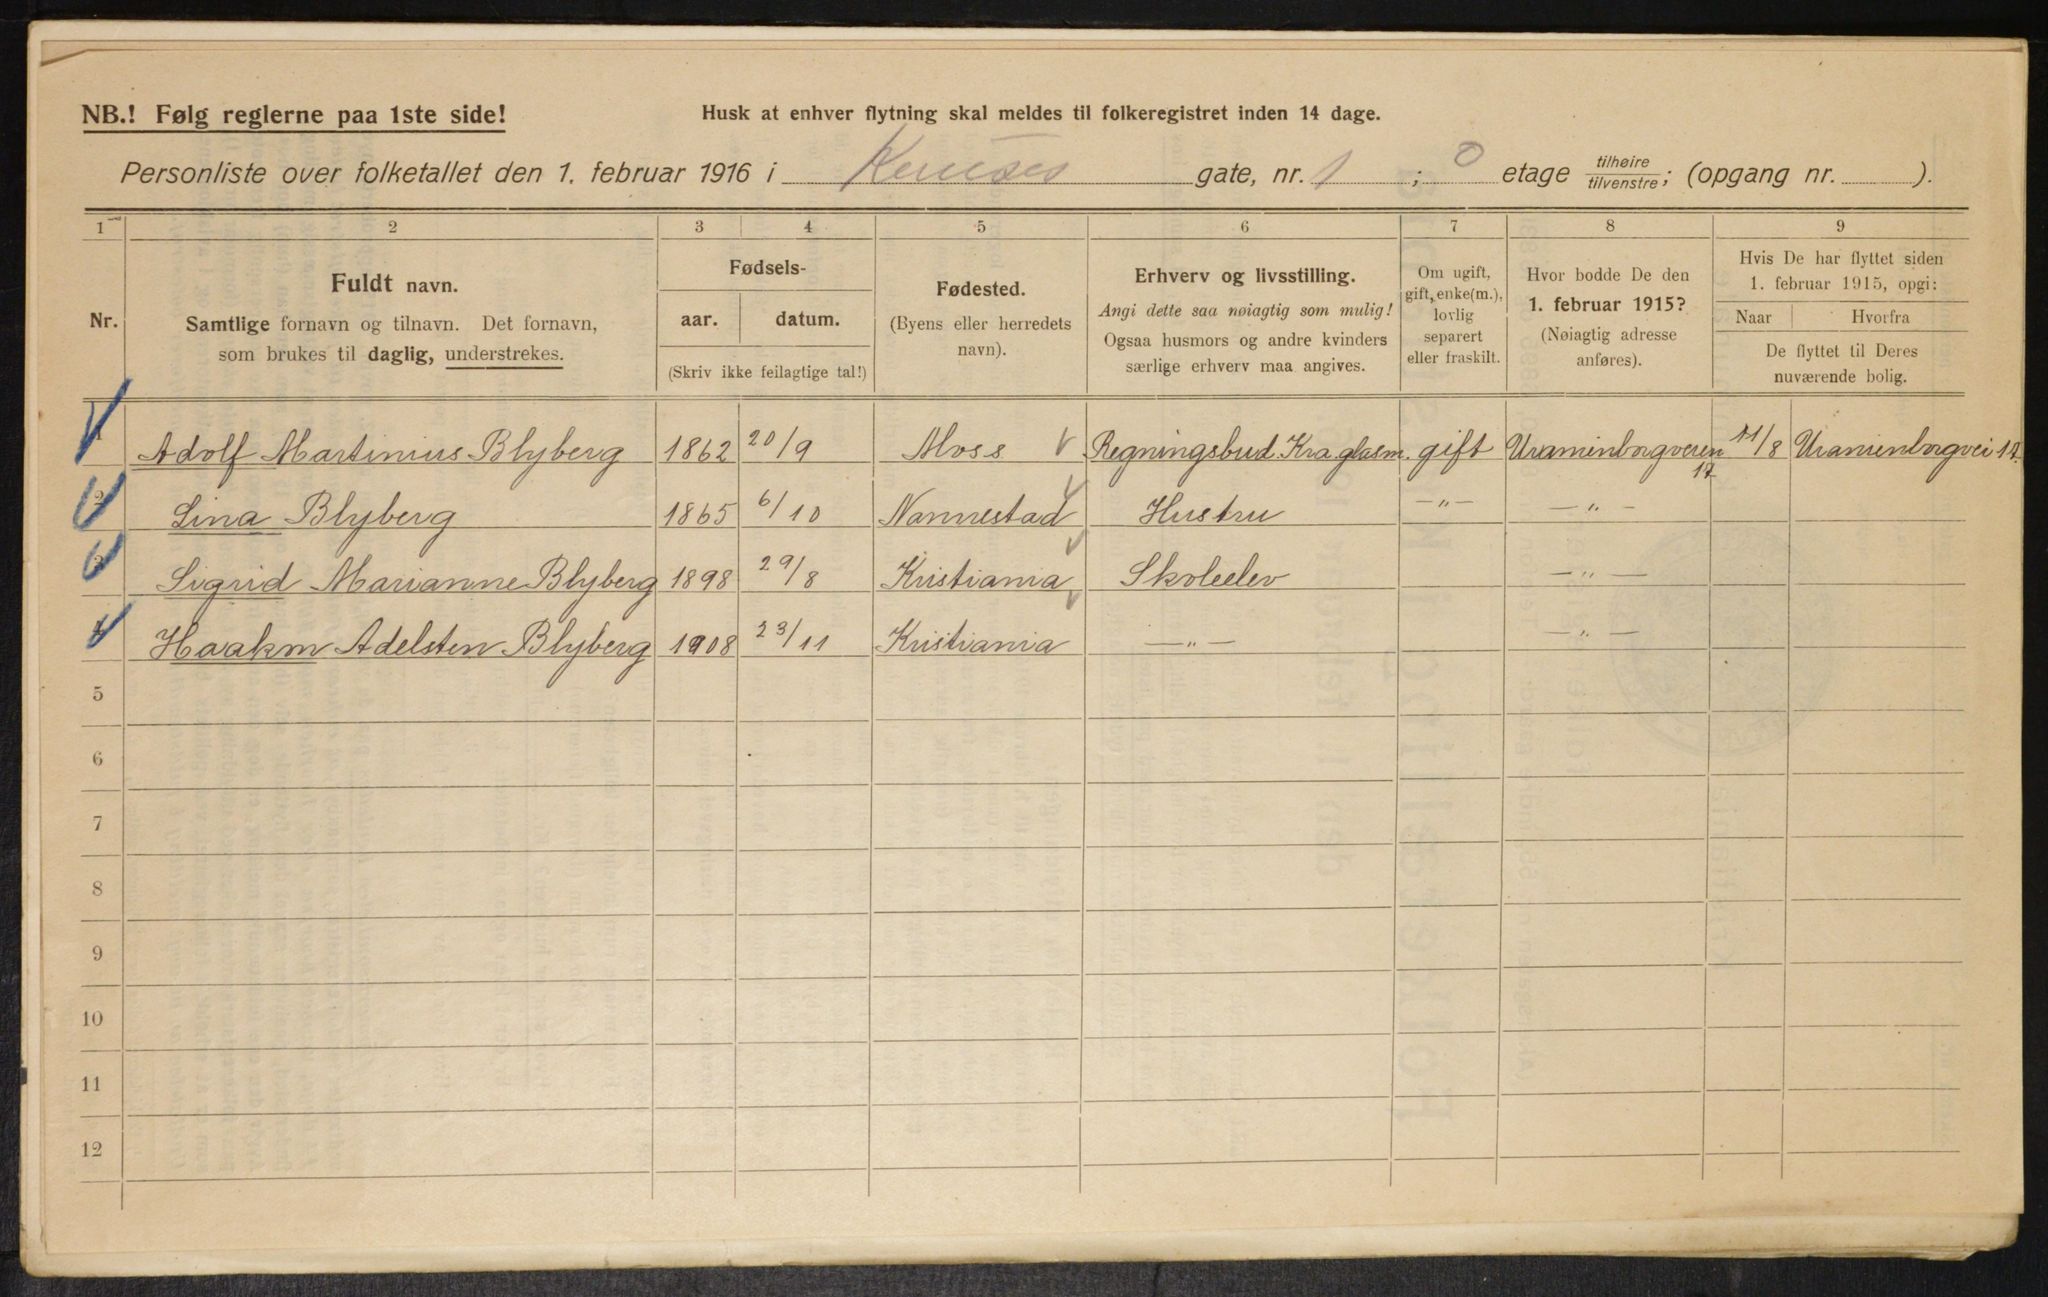 NB.! Følg reglerne paa 1ste side!
Husk at enhver flytning skal meldes til folkeregistret inden 14 dage.
Personliste over folketallet den 1. februar 1916 i gate, nr. 1 ; 0 etage tilhøire/tilvenstre; (opgang nr. ).
1 2 3 4 5 6 7 8 9
Nr.
Fuldt navn.
Samtlige fornavn og tilnavn. Det fornavn,
som brukes til daglig, understrekes.
Fødsels-
aar. datum.
(Skriv ikke feilagtige tal!)
Fødested.
(Byens eller herredets
navn).
Erhverv og livsstilling.
Angi dette saa nøiagtig som mulig!
Ogsaa husmors og andre kvinders
særlige erhverv maa angives.
Om ugift,
gift, enke(m.),
lovlig
separert
eller fraskilt.
Hvor bodde De den
1. februar 1915?
(Nøiagtig adresse
anføres).
Hvis De har flyttet siden
1. februar 1915, opgi:
Naar Hvorfra
De flyttet til Deres
nuværende bolig.
1 Adolf Martinius Blyberg 1862 20/9 Moss Regningsbud. Kra. glasm. gift Uranienborgveien 17 11/8 Uranienborgvei 17.
2 Lina Blyberg 1865 6/10 Nannestad Hustru —„— —„—
3 Sigrid Marianne Blyberg 1898 29/8 Kristiania Skoleelev —„—
4 Haakon Adelsten Blyberg 1908 23/11 Kristiania —„— —„—
5
6
7
8
9
10
11
12